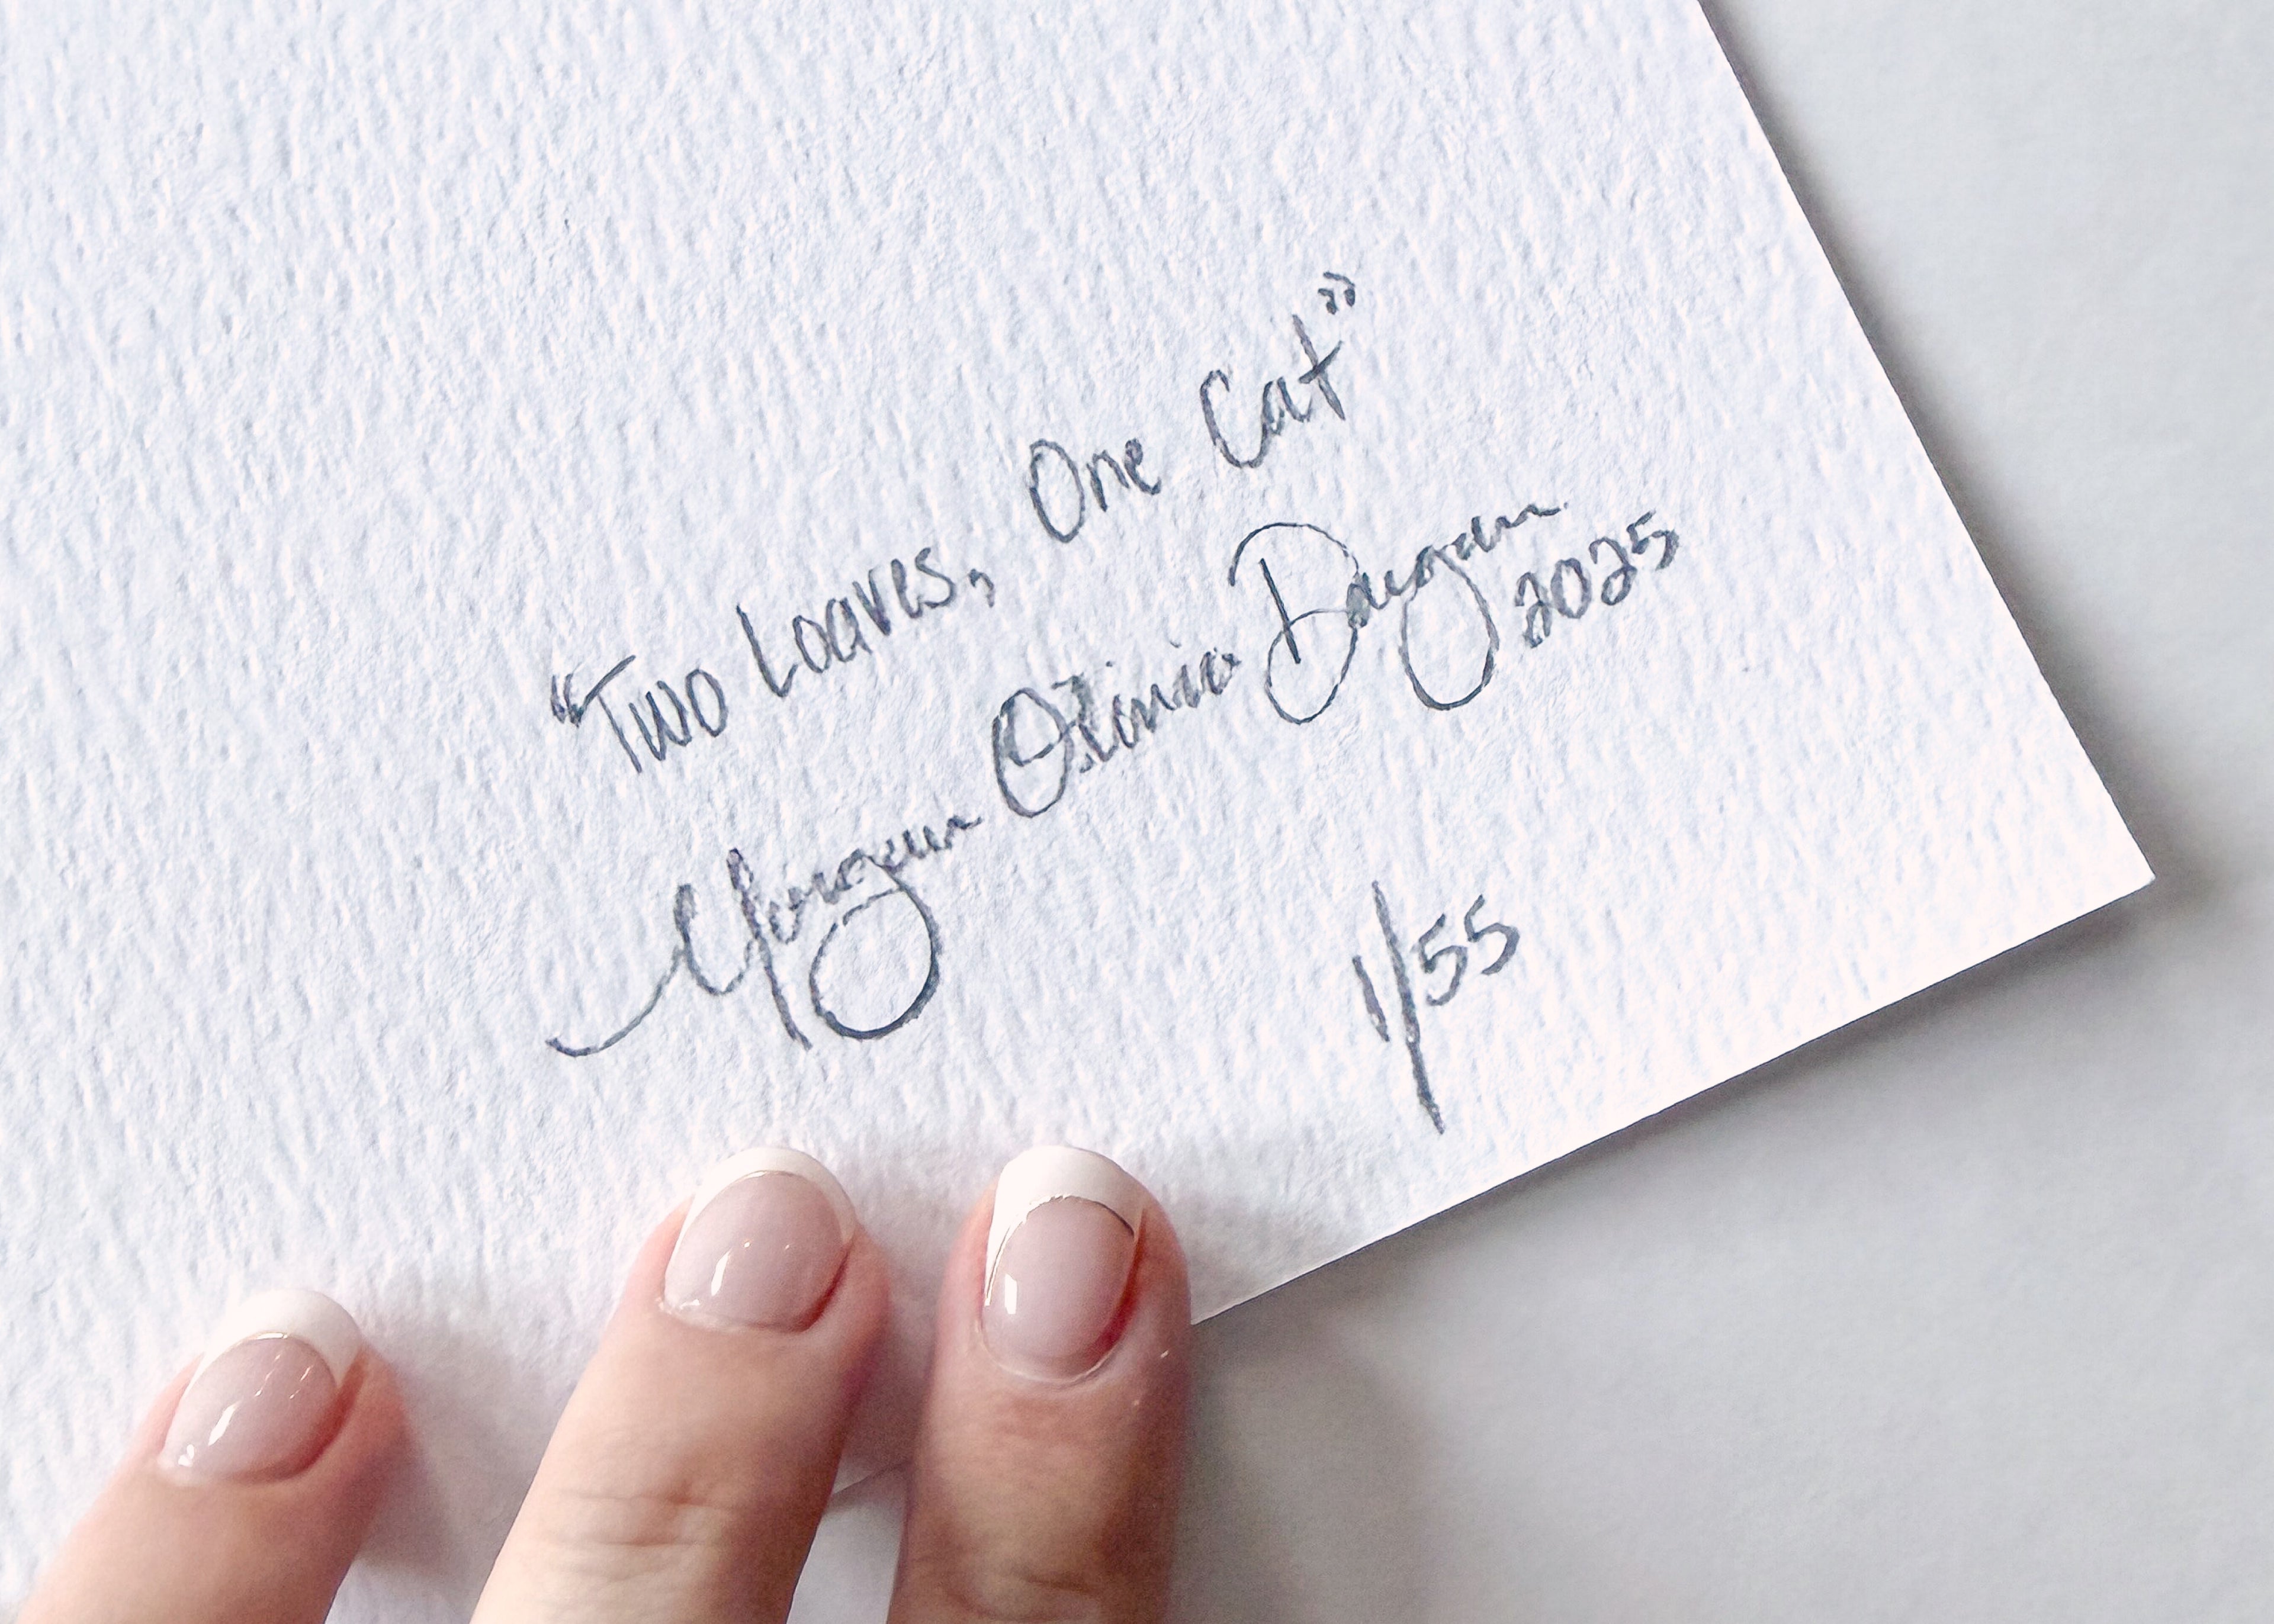 "Two Loaves, One Cat"
Morgan Olivia Dargan
2025
1/55